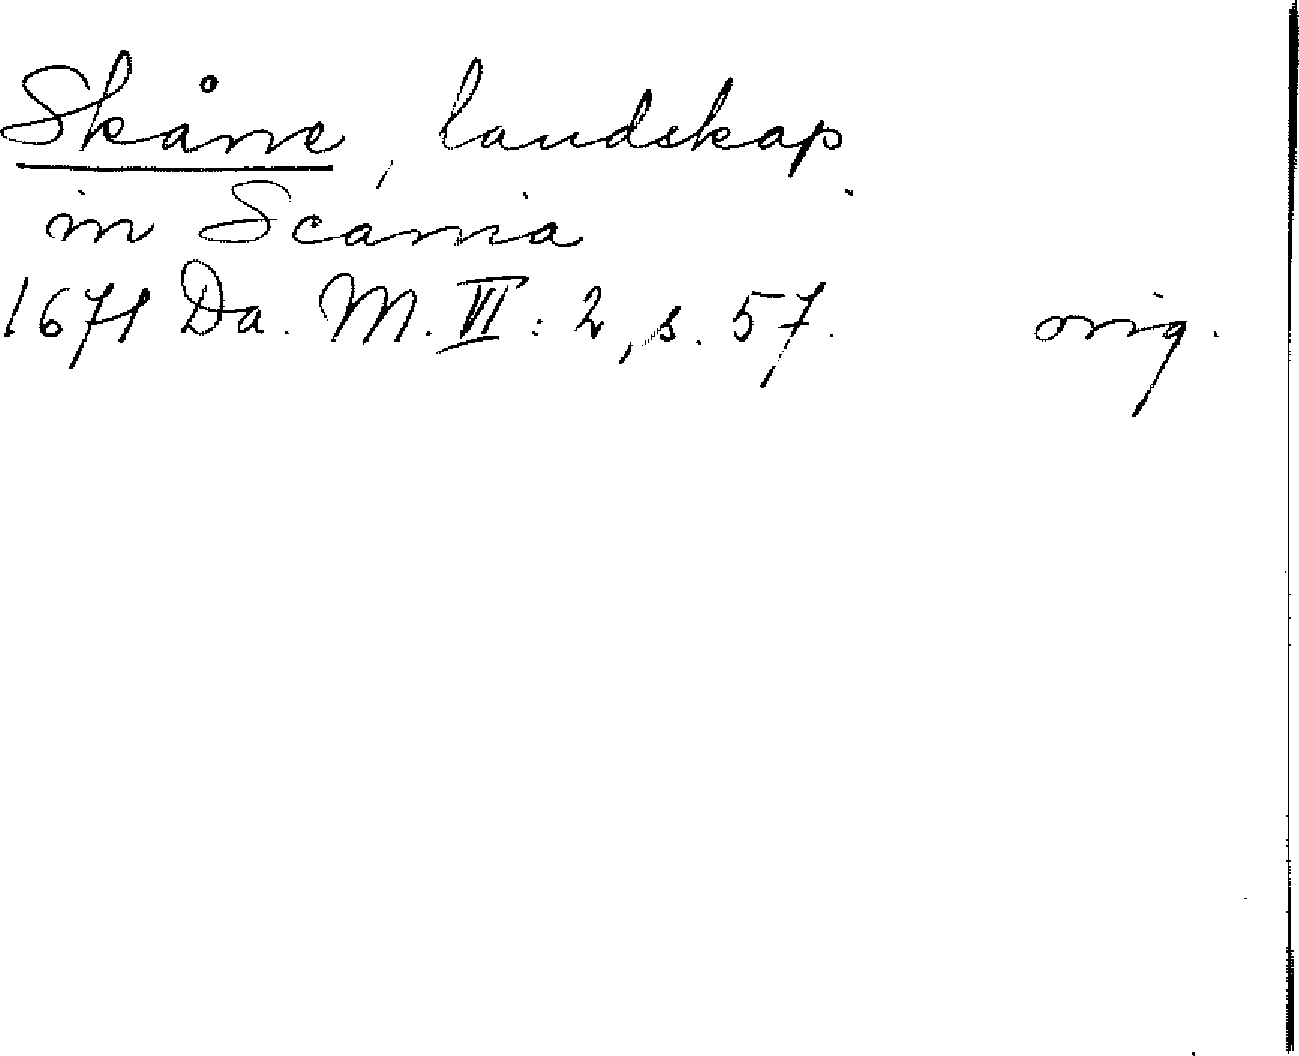 Skåne, landskap.
in Scania
1671 Da. M. VI: 2, s. 57. orig.